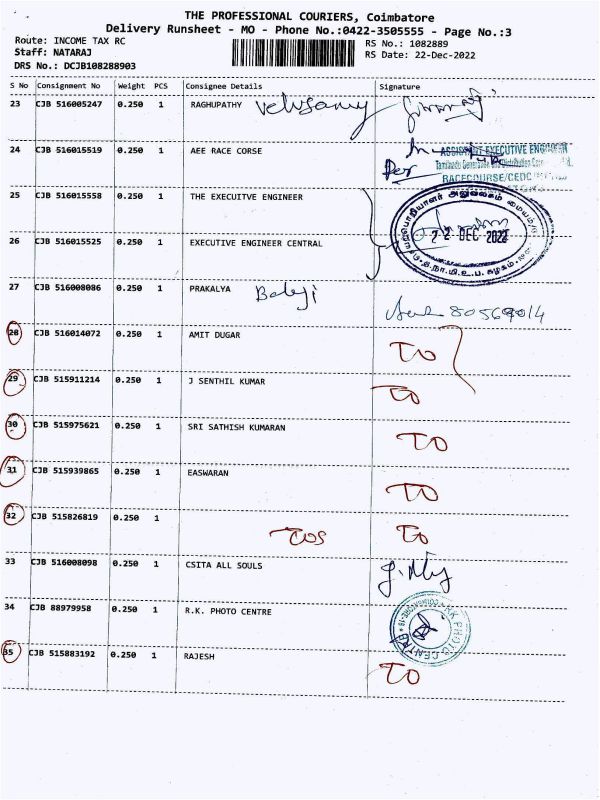 THE PROFESSIONAL COURIERS, Coimbatore
Delivery Runsheet - MO - Phone No.:0422-3505555 - Page No.:3
Route: INCOME TAX RC
Staff: NATARAJ
DRS No.: DCJB108288903
RS No.: 1082889
RS Date: 22-Dec-2022
S No Consignment No Weight PCS Consignee Details Signature
23 CJB 516005247 0.250 1 RAGHUPATHY Velusamy
24 CJB 516015519 0.250 1 AEE RACE CORSE
ASSISTANT EXECUTIVE ENGINEER
Tamilnadu Generation and Distribution
RACECOURSE/CEDC
25 CJB 516015558 0.250 1 THE EXECUITVE ENGINEER
22 DEC 2022
26 CJB 516015525 0.250 1 EXECUTIVE ENGINEER CENTRAL
27 CJB 516008086 0.250 1 PRAKALYA Balaji
28 CJB 516014072 0.250 1 AMIT DUGAR TO
29 CJB 515911214 0.250 1 J SENTHIL KUMAR TO
30 CJB 515975621 0.250 1 SRI SATHISH KUMARAN TO
31 CJB 515939865 0.250 1 EASWARAN TO
32 CJB 515826819 0.250 1 TO
33 CJB 516008098 0.250 1 CSITA ALL SOULS
34 CJB 88979958 0.250 1 R.K. PHOTO CENTRE
35 CJB 515883192 0.250 1 RAJESH TO